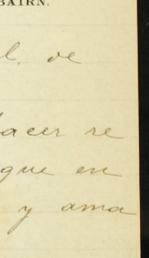 BAIRN.
l. de
acer re
que en
y ama